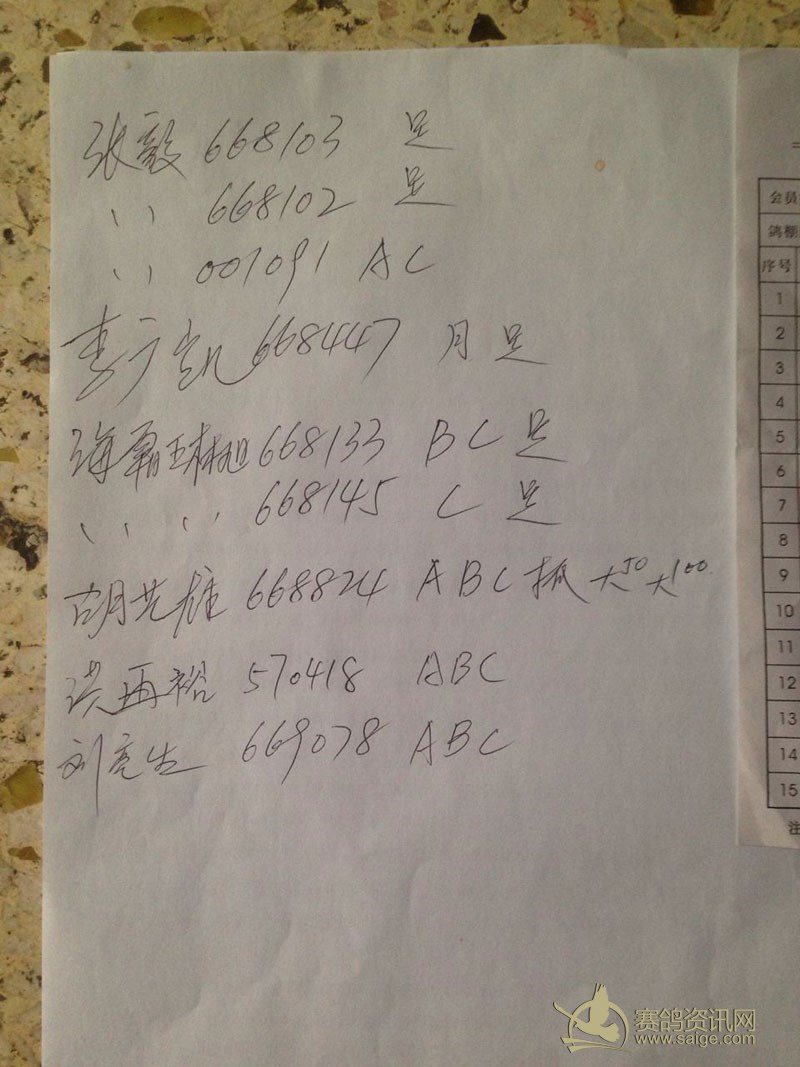 张毅 668103 足
〃 668102 足
〃 007091 AC
李广凯 668447 月足
海霸王林旭 668133 BC足
〃 〃 668145 C足
胡先雄 668824 ABC抓 大50大100
洪再裕 570418 ABC
刘亮生 669078 ABC
会员
鸽棚
序号
1
2
3
4
5
6
7
8
9
10
11
12
13
14
15
注
赛鸽资讯网
www.saige.com